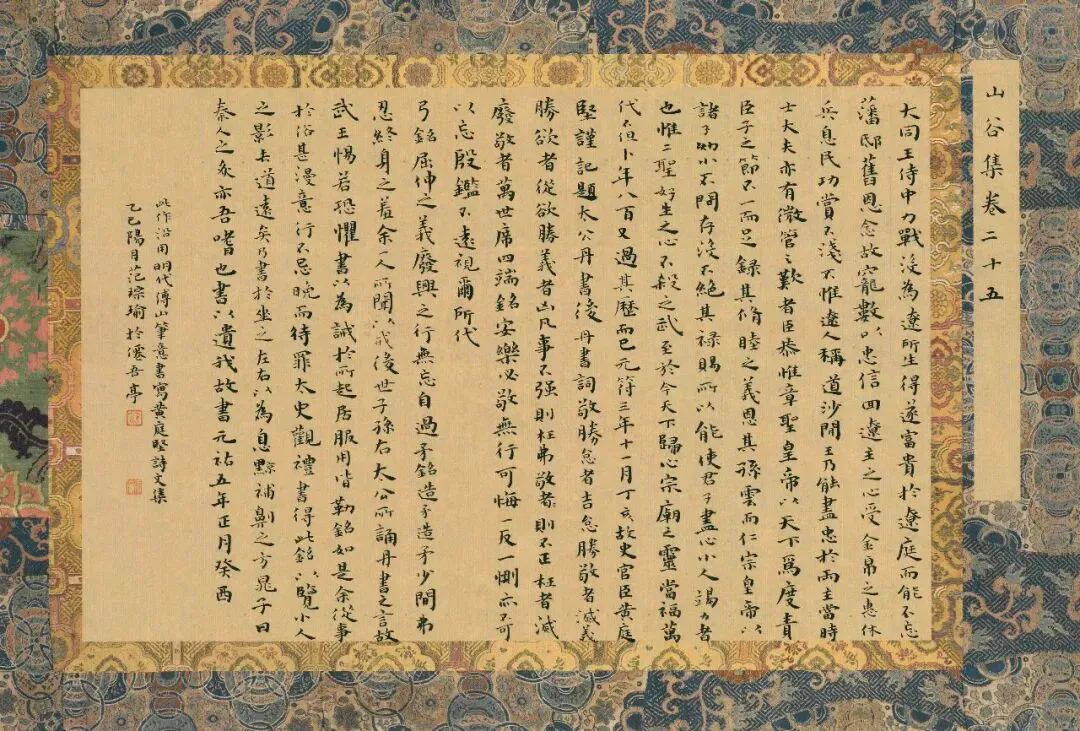 山谷集卷二十五
大同王侍中力戰沒為遼所生得遂富貴於遼庭而能不忘
藩邸舊恩念故寵數以忠信回遼主之心受金帛之惠休
兵息民功賞不淺不惟遼人稱道沙間王乃能盡忠於兩主當時
士大夫亦有微管之歎者臣恭惟章聖皇帝以天下爲度責
臣子之節不一而足錄其脩睦之義恩其孫雲而仁宗皇帝以
諸子幼小不閱存沒不絕其祿賜所以能使君子盡心小人竭力者
也惟二聖好生之心不殺之武至於今天下歸心宗廟之靈當福萬
代不但卜年八百又過其歷而已元符三年十一月丁亥故史官臣黃庭
堅謹記題太公丹書後丹書詞敬勝怠者吉怠勝敬者滅義
勝欲者從欲勝義者凶凡事不强則枉弗敬者則不正枉者滅
廢敬者萬世席四端銘安樂必敬無行可悔一反一側亦不可
以忘殷鑑不遠視爾所代
弓銘屈伸之義廢興之行無忘自過矛銘造矛造矛少間弗
忍終身之羞余一人所聞以戒後世子孫右太公所誦丹書之言故
武王惕若恐懼書以為誡於所起居服用皆勒銘如是余從事
於俗甚漫意行不忌晚而待罪太史觀禮書得此銘以覽小人
之影去道遠矣乃書於坐之左右以為息黥補劓之方晁子曰
秦人之炙亦吾嗜也書以遺我故書元祐五年正月癸酉
此作沿用明代傅山筆意書寫黃庭堅詩文集
乙巳陽月范琮瑜於僊吾亭